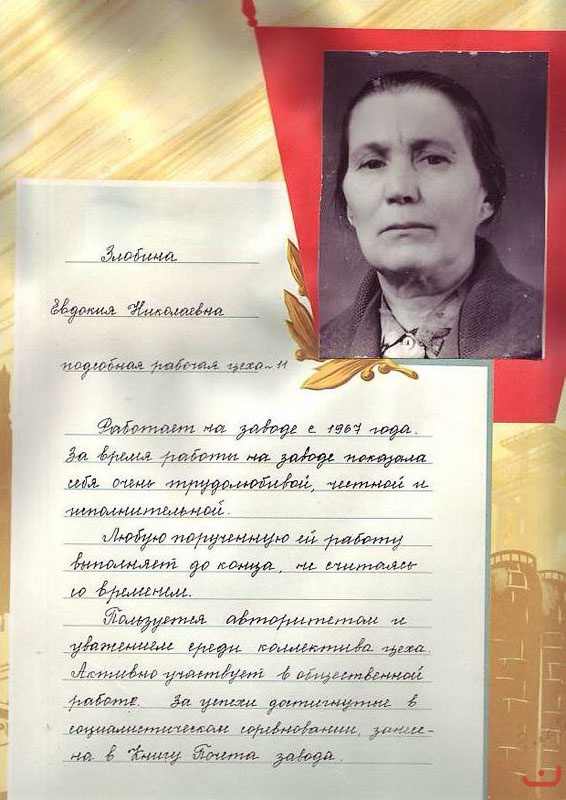 Злобина
Евдокия Николаевна
подсобная рабочая цеха-11
Работает на заводе с 1967 года.
За время работы на заводе показала
себя очень трудолюбивой, честной и
исполнительной.
Любую порученную ей работу
выполняет до конца, не считаясь
со временем.
Пользуется авторитетом и
уважением среди коллектива цеха.
Активно участвует в общественной
работе. За успехи достигнутые в
социалистическом соревновании, занесе-
на в Книгу Почета завода.